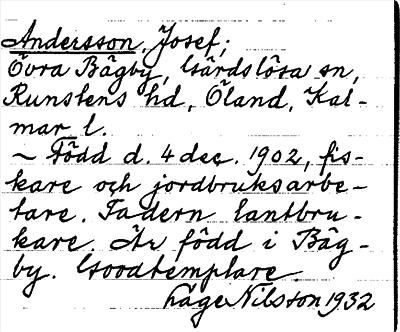 Andersson, Josef;
Övra Bägby, Gärdslösa sn,
Runstens hd, Öland, Kal-
mar l.
~ Född d. 4 dec. 1902, fis-
kare och jordbruksarbe-
tare. Fadern lantbru-
kare. Är född i Bäg-
by. Goodtemplare.
Låge Nilsson 1932